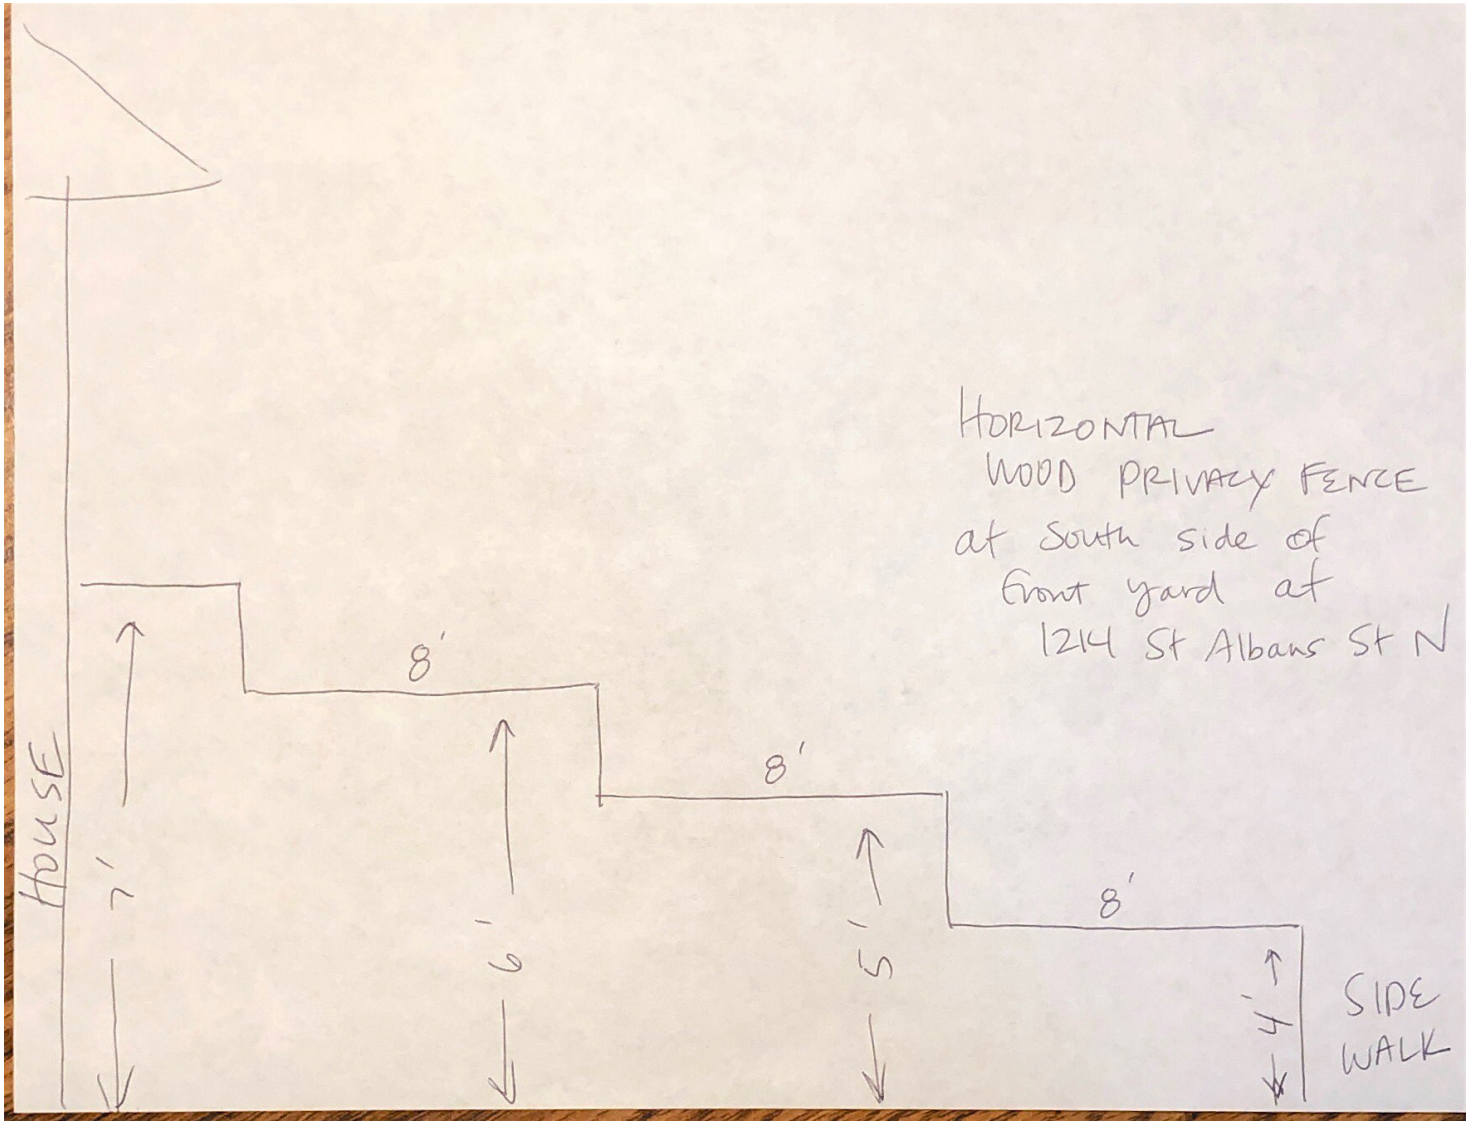 HORIZONTAL
WOOD PRIVACY FENCE
at South side of
front yard at
1214 St Albans St N
8'
8'
8'
HOUSE
7'
6'
5'
4'
SIDE
WALK